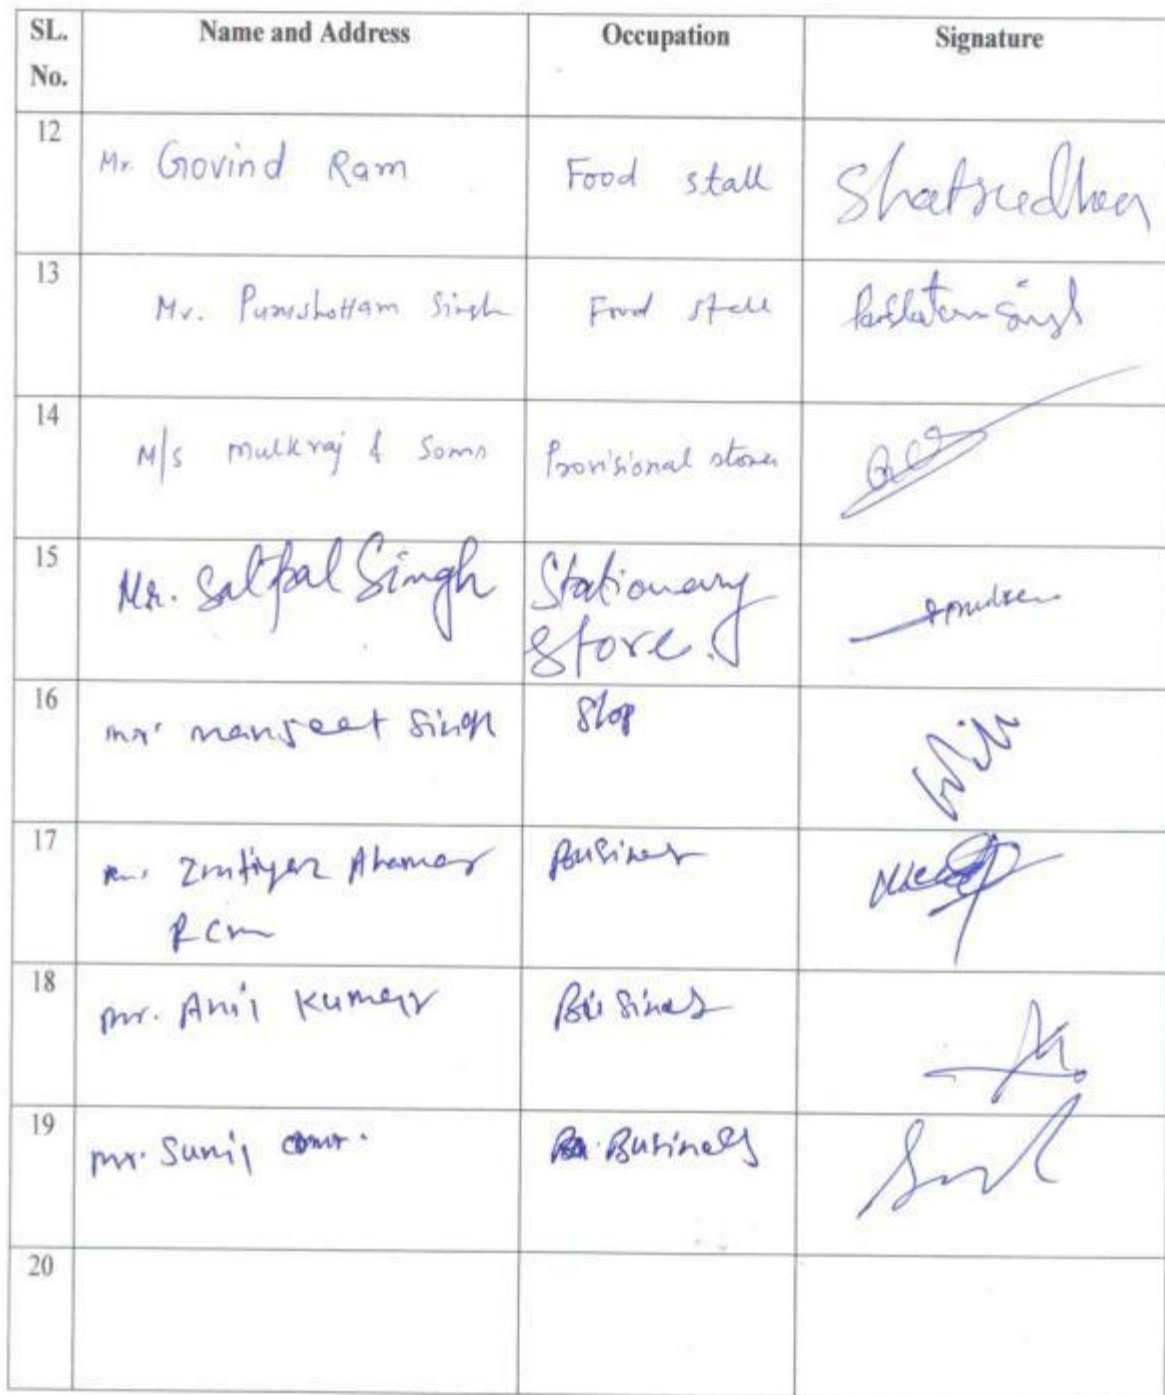 SL. No. Name and Address Occupation Signature
12 Mr. Govind Ram Food stall
13 Mr. Purushottam Singh Food stall
14 M/s Mulkraj & Sons Provisional stores
15 Mr. Satpal Singh Stationary
Store.
16 mr. manjeet Singh Shop
17 Business
18 mr. Anil Kumar Business
19 mr. Sunil Business
20